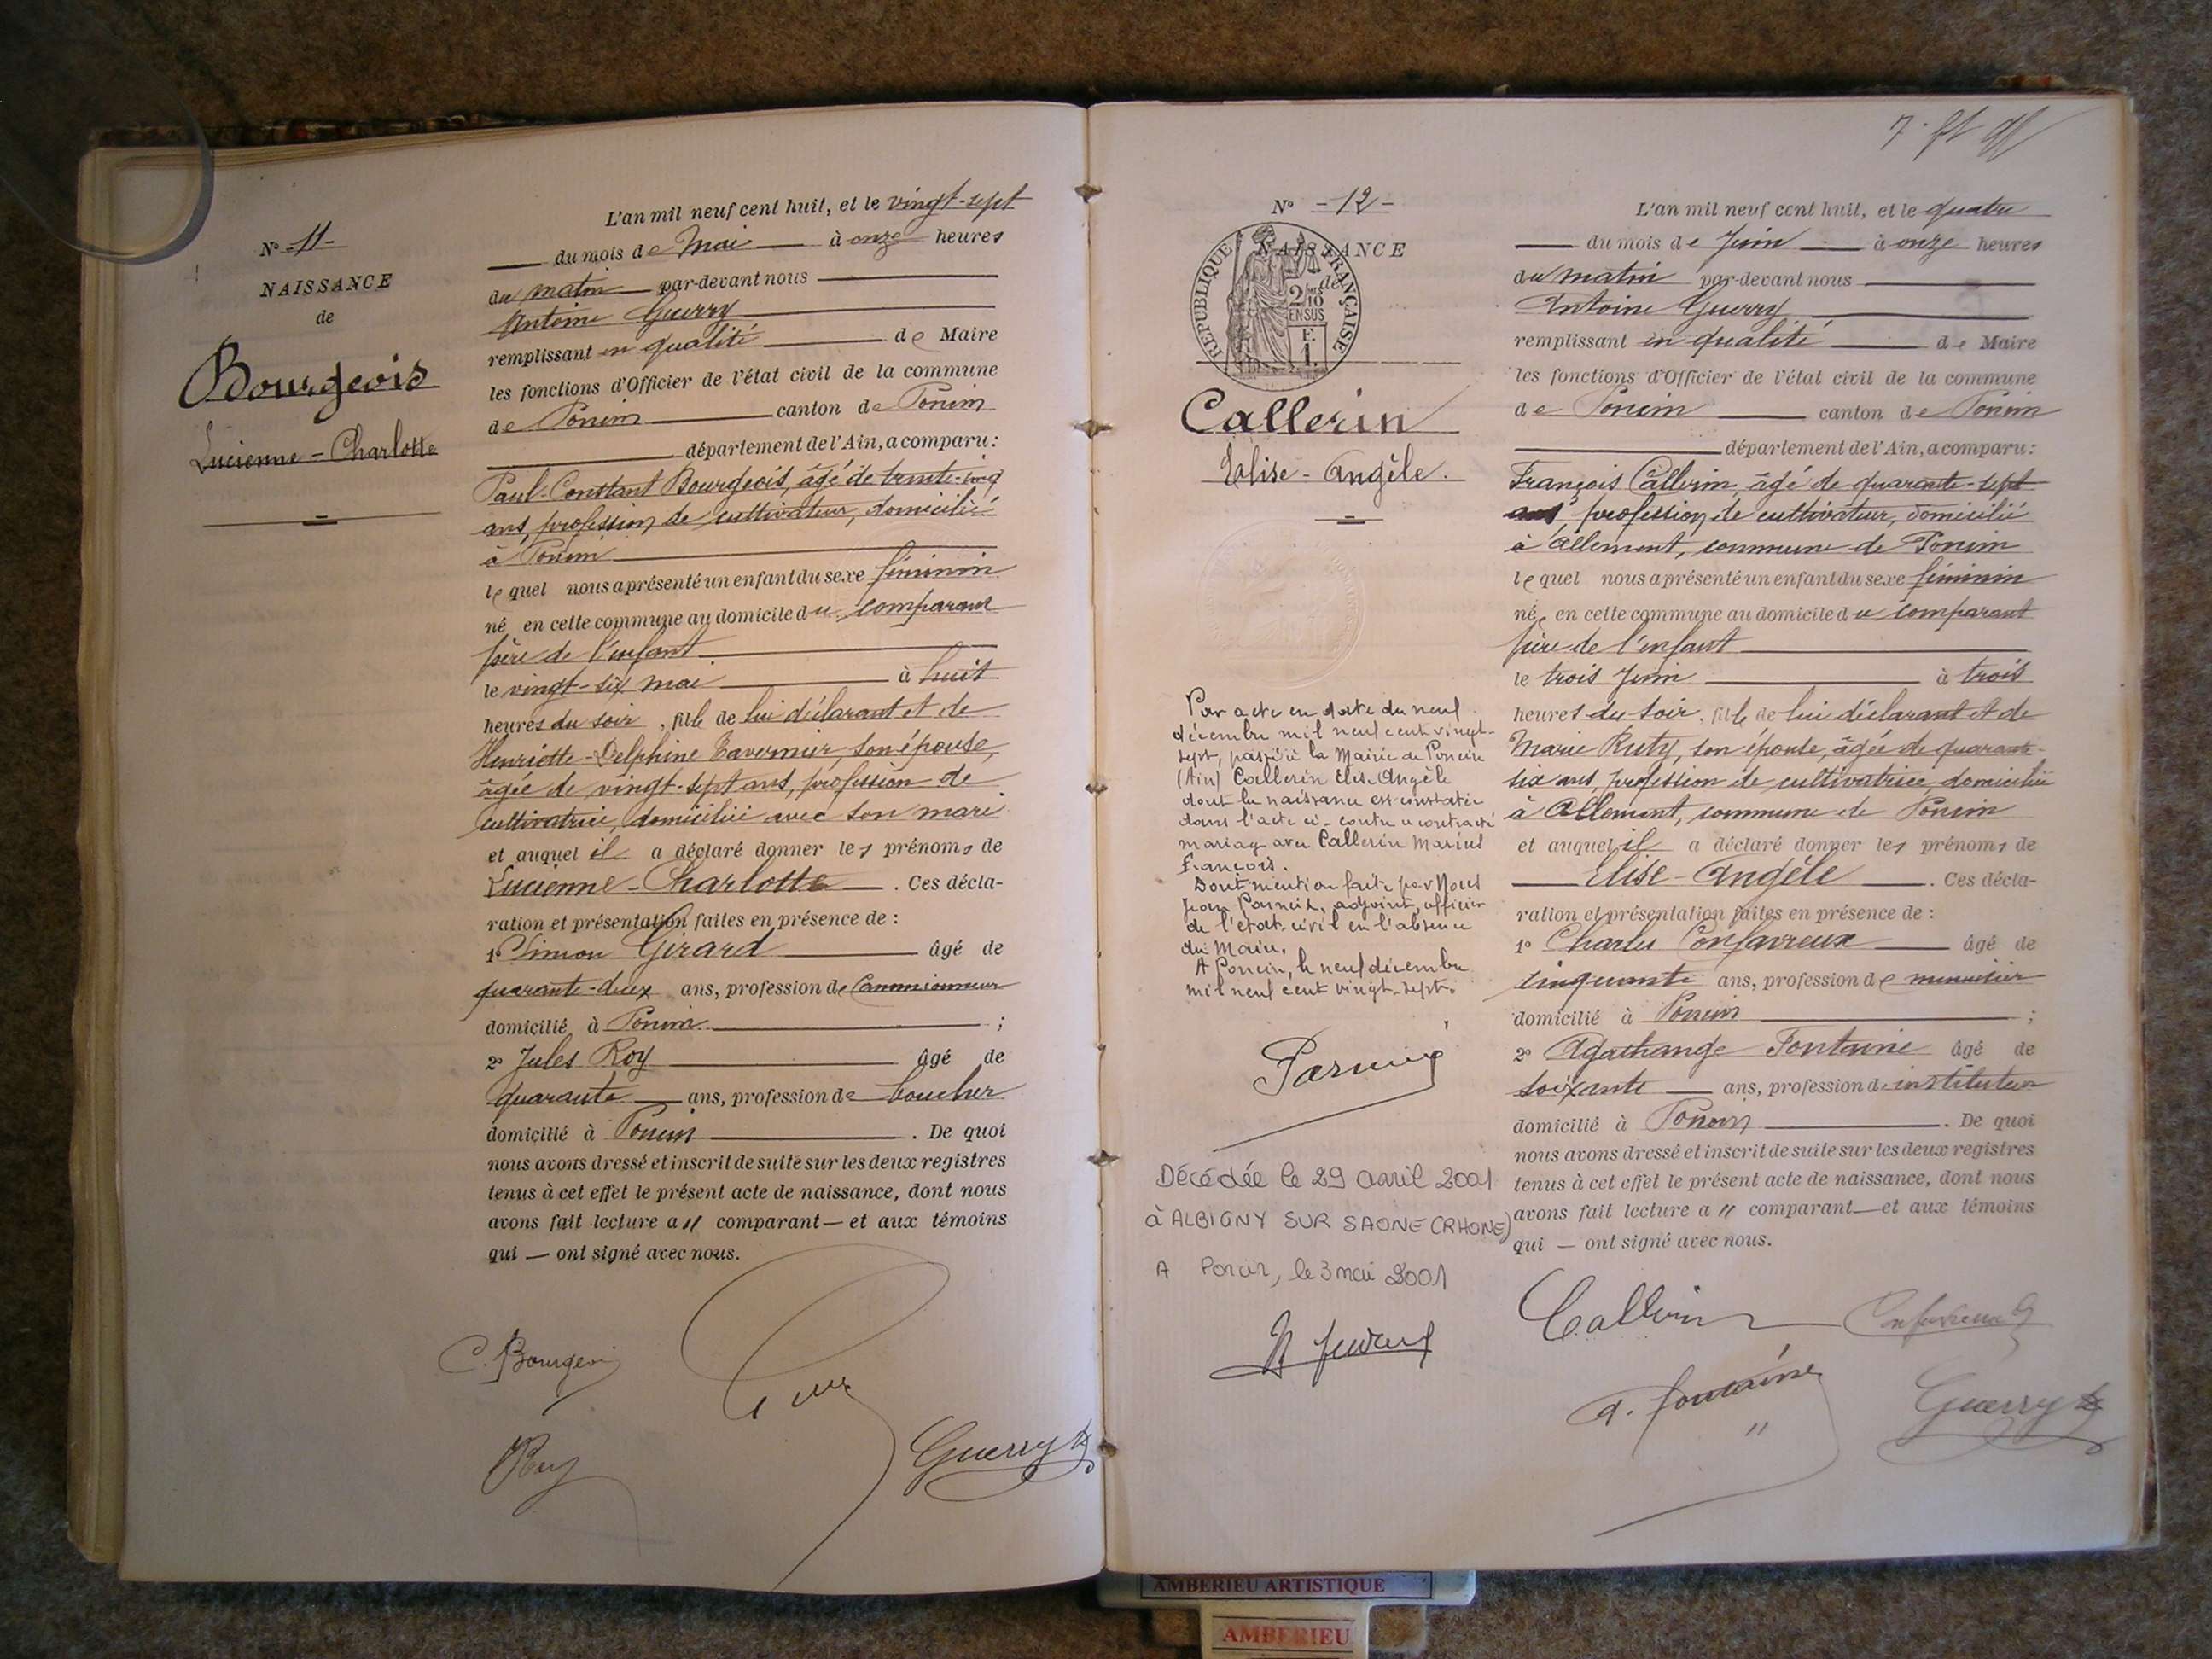 N° -11-
NAISSANCE
de
Bourgeois
Lucienne-Charlotte
L'an mil neuf cent huit, et le vingt-sept
du mois de Mai à onze heures
du matin par-devant nous
Antoine Guerry
remplissant en qualité de Maire
les fonctions d'Officier de l'état civil de la commune
de Poncin canton de Poncin
département de l'Ain, a comparu:
Paul-Constant Bourgeois, âgé de trente-cinq
ans, profession de cultivateur, domicilié
à Poncin
lequel nous a présenté un enfant du sexe féminin
né en cette commune au domicile du comparant
père de l'enfant
le vingt-six mai à huit
heures du soir, fille de lui déclarant et de
Henriette-Delphine Tavernier, son épouse,
âgée de vingt-sept ans, profession de
cultivatrice, domiciliée avec son mari
et auquel il a déclaré donner les prénoms de
Lucienne-Charlotte. Ces décla-
ration et présentation faites en présence de :
1° Simon Girard âgé de
quarante-deux ans, profession de Camionneur
domicilié à Poncin ;
2° Jules Roy âgé de
quarante ans, profession de boucher
domicilié à Poncin. De quoi
nous avons dressé et inscrit de suite sur les deux registres
tenus à cet effet le présent acte de naissance, dont nous
avons fait lecture a " comparant — et aux témoins
qui — ont signé avec nous.
C. Bourgeois
Roy
Guerry
7.
N° -12-
NAISSANCE
de
REPUBLIQUE FRANÇAISE
2/10
EN SUS
Callerin
Elise-Angèle.
Par acte en date du neuf
décembre mil neuf cent vingt-
sept, passé à la Mairie de Poncin
(Ain) Callerin Elise-Angèle
dont la naissance est constatée
dans l'acte ci-contre a contracté
mariage avec Callerin Marius
François.
Dont mention faite par Nous
Jean adjoint, officier
de l'état-civil en l'absence
du Maire.
A Poncin, le neuf décembre
mil neuf cent vingt-sept.
Décédée le 29 avril 2001
à ALBIGNY SUR SAONE (RHONE)
A Poncin, le 3 mai 2001
L'an mil neuf cent huit, et le quatre
du mois de Juin à onze heures
du matin par-devant nous
Antoine Guerry
remplissant en qualité de Maire
les fonctions d'Officier de l'état civil de la commune
de Poncin canton de Poncin
département de l'Ain, a comparu:
François Callerin, âgé de quarante-sept
ans profession de cultivateur, domicilié
à Allement, commune de Poncin
lequel nous a présenté un enfant du sexe féminin
né en cette commune au domicile du comparant
père de l'enfant
le trois Juin à trois
heures du soir, fille de lui déclarant et de
Marie Ruty, son épouse, âgée de quarante-
six ans, profession de cultivatrice, domiciliée
à Allement, commune de Poncin
et auquel il a déclaré donner les prénoms de
Elise-Angèle. Ces décla-
ration et présentation faites en présence de :
1° Charles Confavreux âgé de
cinquante ans, profession de menuisier
domicilié à Poncin ;
2° Agathange Fontaine âgé de
soixante ans, profession d'instituteur
domicilié à Poncin. De quoi
nous avons dressé et inscrit de suite sur les deux registres
tenus à cet effet le présent acte de naissance, dont nous
avons fait lecture a " comparant — et aux témoins
qui — ont signé avec nous.
Callerin Confavreux
A. Fontaine Guerry
AMBERIEU ARTISTIQUE
AMBERIEU